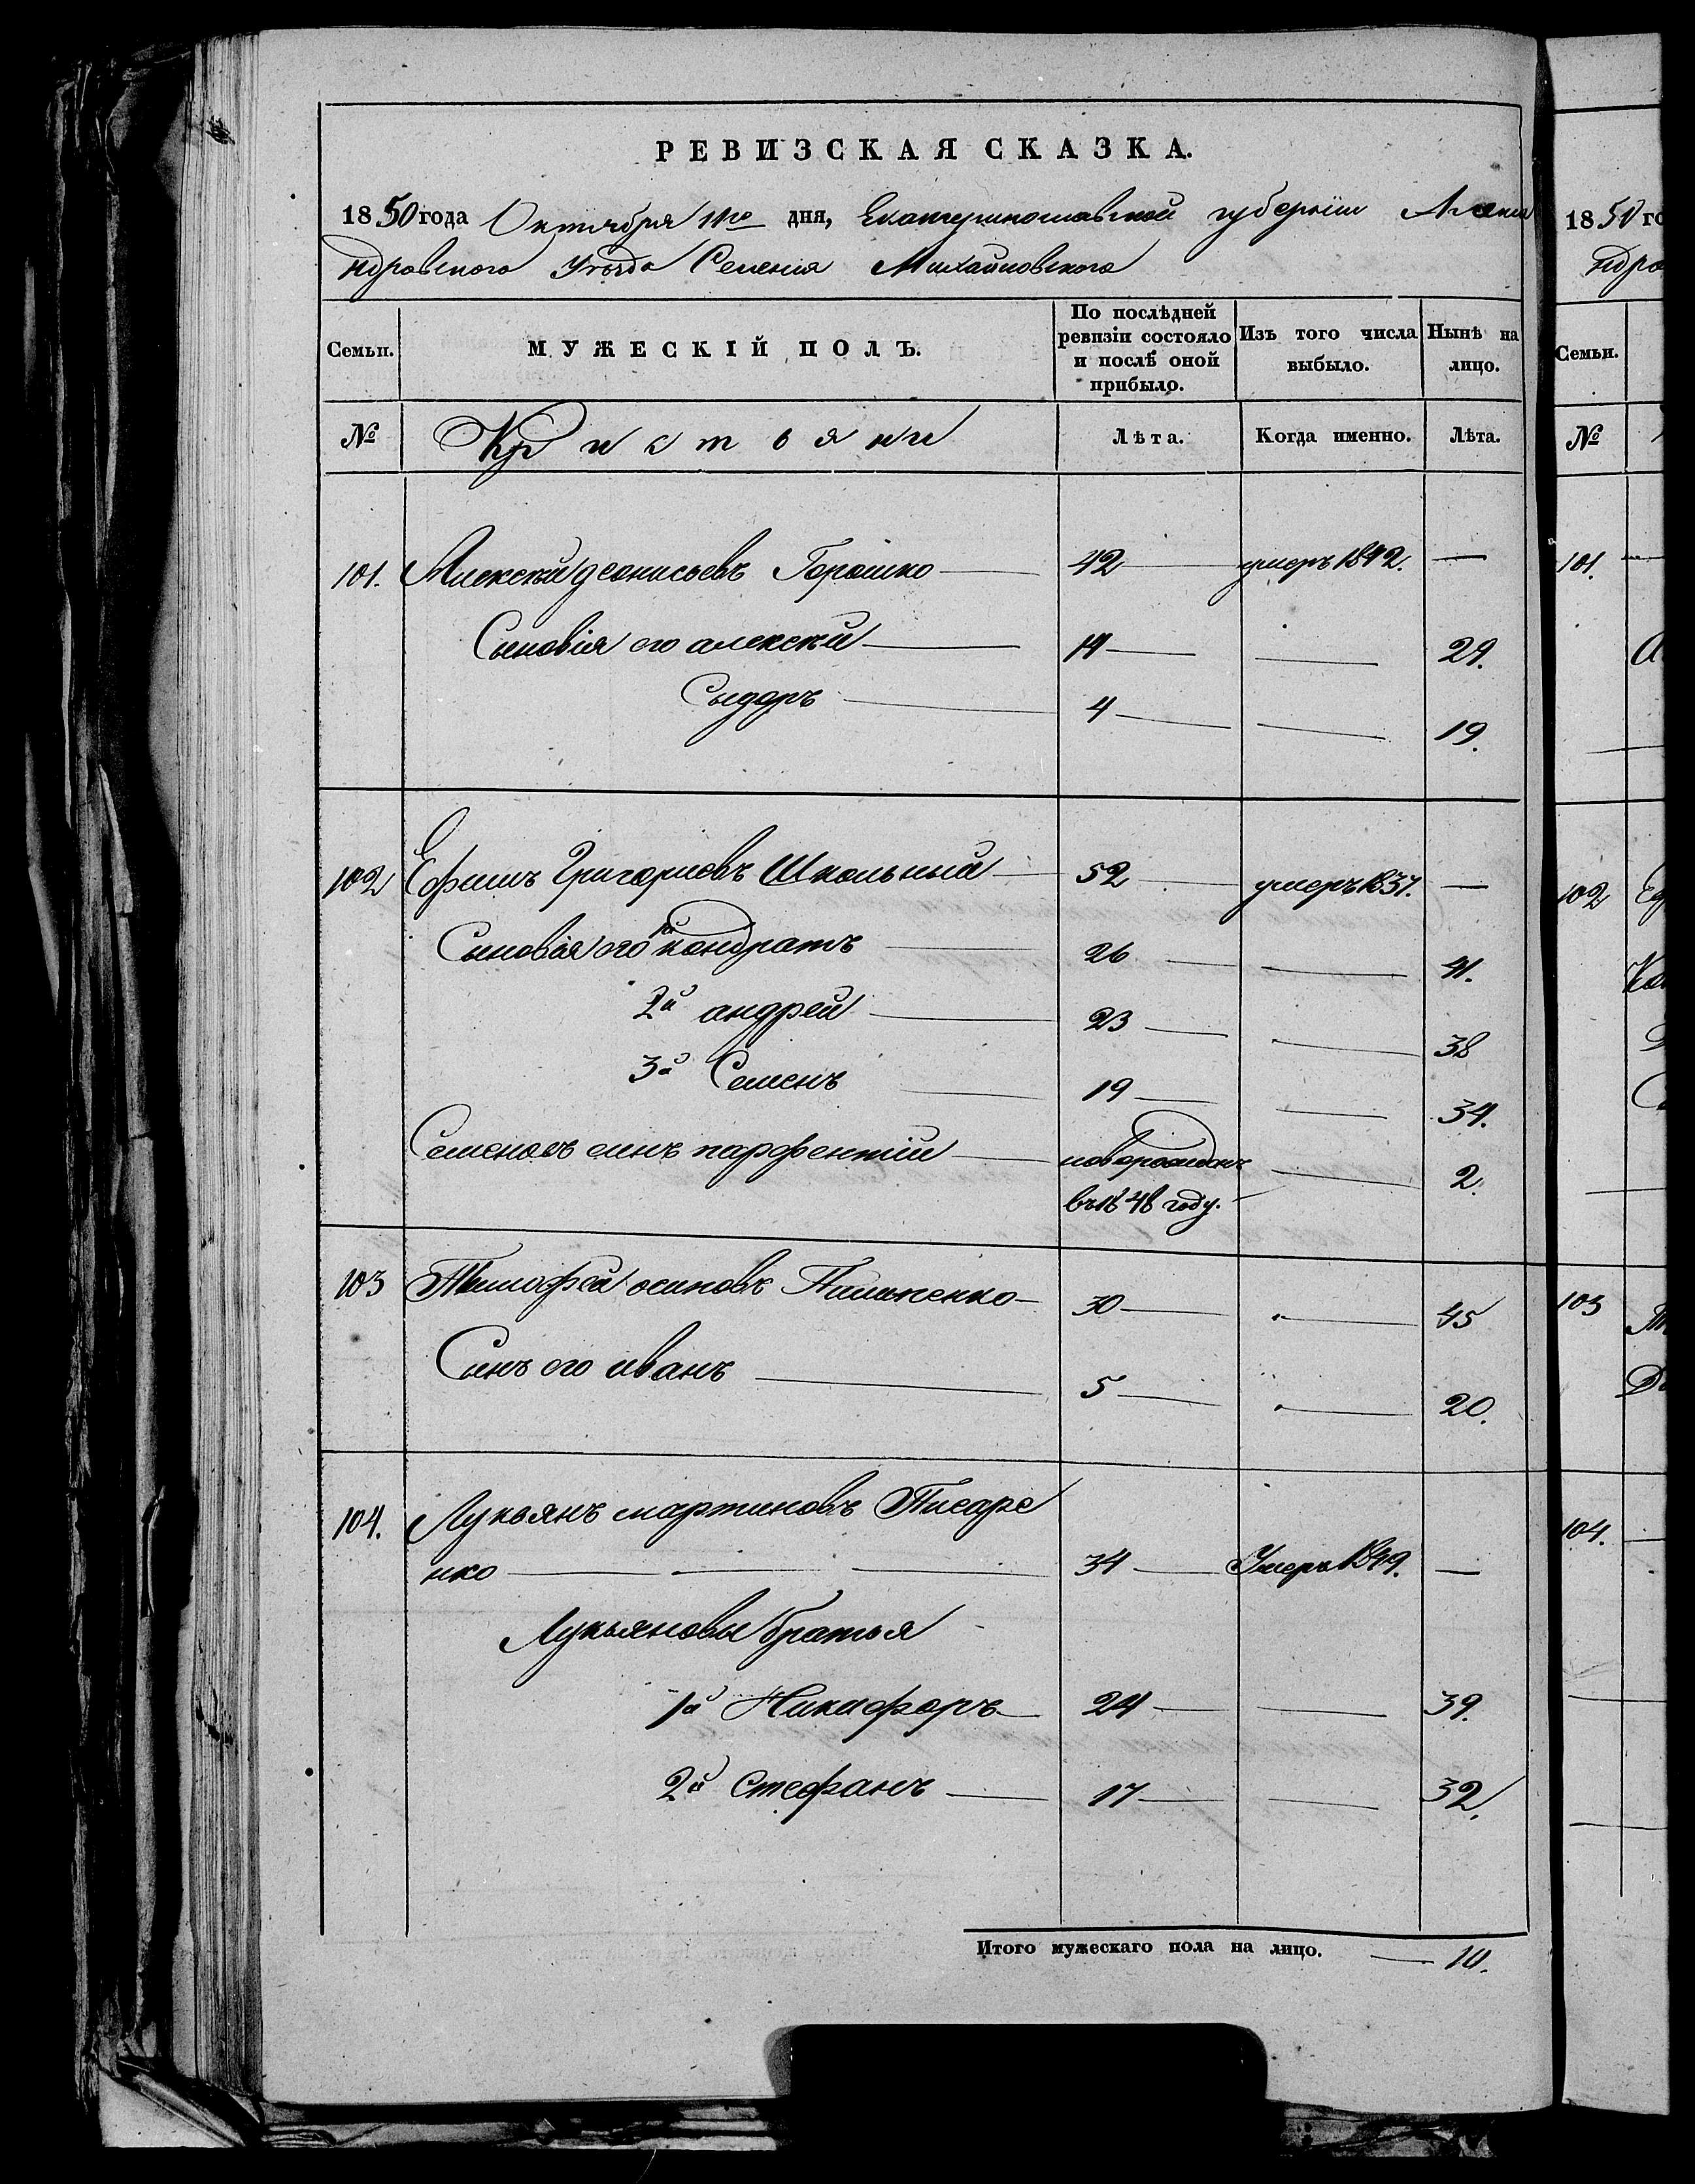 РЕВИЗСКАЯ СКАЗКА.
1850 года Октября 11го дня, Екатеринославской губернии Алекса
ндровского Уезда Селения Михайловского
Семьи. МУЖЕСКІЙ ПОЛЪ. По послѣдней ревизіи состояло и послѣ оной прибыло. Изъ того числа выбыло. Нынѣ на лицо.
№ Кристьяни Лѣта. Когда именно. Лѣта.
101. Алексей деонисьевъ Горошко — 42 — умеръ 1842. —
Синовія его алексей — 14 — — 29.
Сыдоръ — 4 — — 19.
102 Ефимъ Григориевъ Школьный — 52 — умеръ 1837. —
Синовія его 1й кондратъ — 26 — — 41.
2й андрей — 23 — — 38
3й Семенъ — 19 — — 34.
Семеновъ синъ парфентій — новорожденъ — 2.
въ 1848 году.
103 Тимофей осиповъ Пилипенко — 30 — — 45
Синъ его иванъ — 5 — — 20.
104. Лукьянъ мартиновъ Писаре
нко — 34 — Умеръ 1849. —
Лукьяновы братья
1й Никифоръ — 24 — — 39.
2й Стефанъ — 17 — — 32.
Итого мужескаго пола на лицо. — 10.
1850 го
ндро
Семьи.
№
101.
102 Еф
103
104.